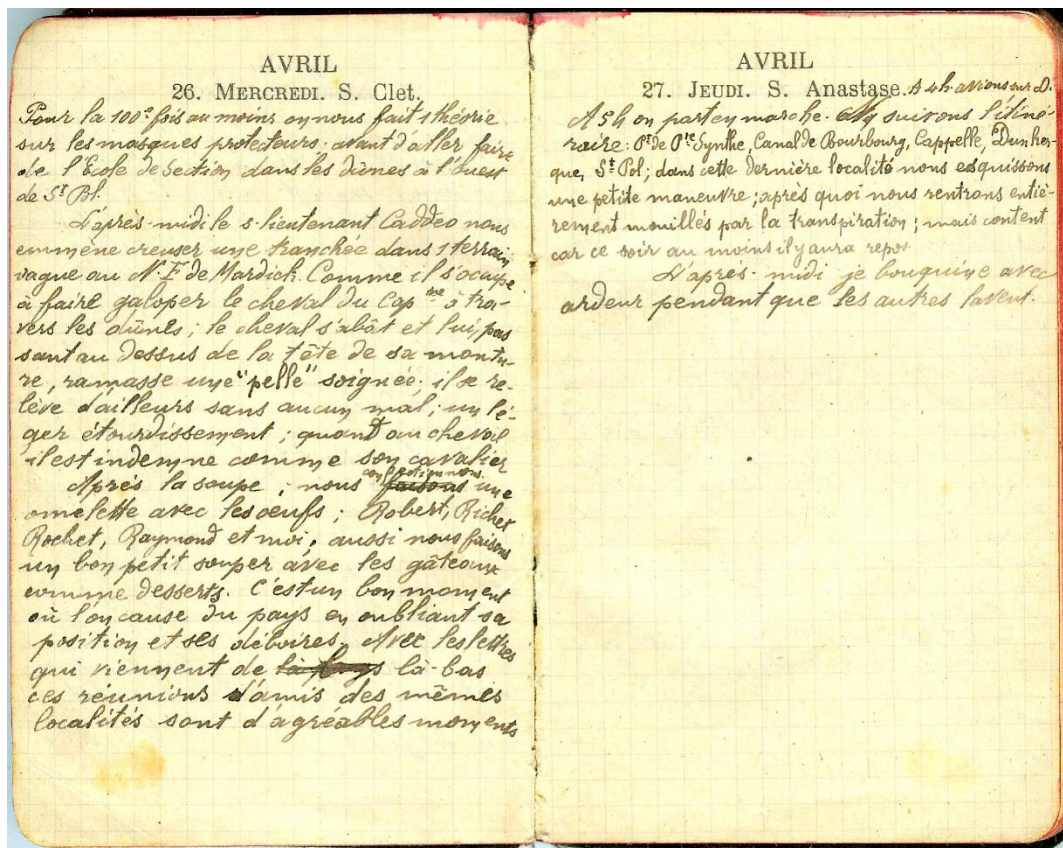 AVRIL
26. MERCREDI. S. Clet.
Pour la 100e fois au moins on nous fait 1 théorie
sur les masques protecteurs. avant d'aller faire
de l'Ecole de Section dans les dûnes à l'ouest
de St Pol.
L'après-midi le s-lieutenant Caddeo nous
emmène creuser une tranchée dans 1 terrain
vague au N.E de Mardick. Comme il s'occupe
à faire galoper le cheval du Capne à tra-
vers les dûnes ; le cheval s'abât et lui, pas
sant au dessus de la tête de sa montu-
re, ramasse une "pelle" soignée. il se re-
lève d'ailleurs sans aucun mal ; un lé-
ger étourdissement ; quant au cheval
il est indemne comme son cavalier
Après la soupe ; nous confectionnons une
omelette avec les oeufs ; Robert, Richet
Rochet, Raymond et moi, aussi nous faisons
un bon petit souper avec les gâteaux
comme desserts. C'est un bon moment
où l'on cause du pays en oubliant sa
position et ses déboires. Avec les lettres
qui viennent de là-bas
ces réunions d'amis des mêmes
localités sont d'agréables moments
AVRIL
27. JEUDI. S. Anastase. A 4h avions sur D.
A 5h on part en marche. suivons l'itiné-
raire : Pt de Pte Synthe, Canal de Bourbourg, Cappelle, Dunker-
que, St Pol ; dans cette dernière localité nous esquissons
une petite maneuvre ; après quoi nous rentrons entiè-
rement mouillés par la transpiration ; mais content
car ce soir au moins il y aura repos.
L'après-midi je bouquine avec
ardeur pendant que les autres lavent.